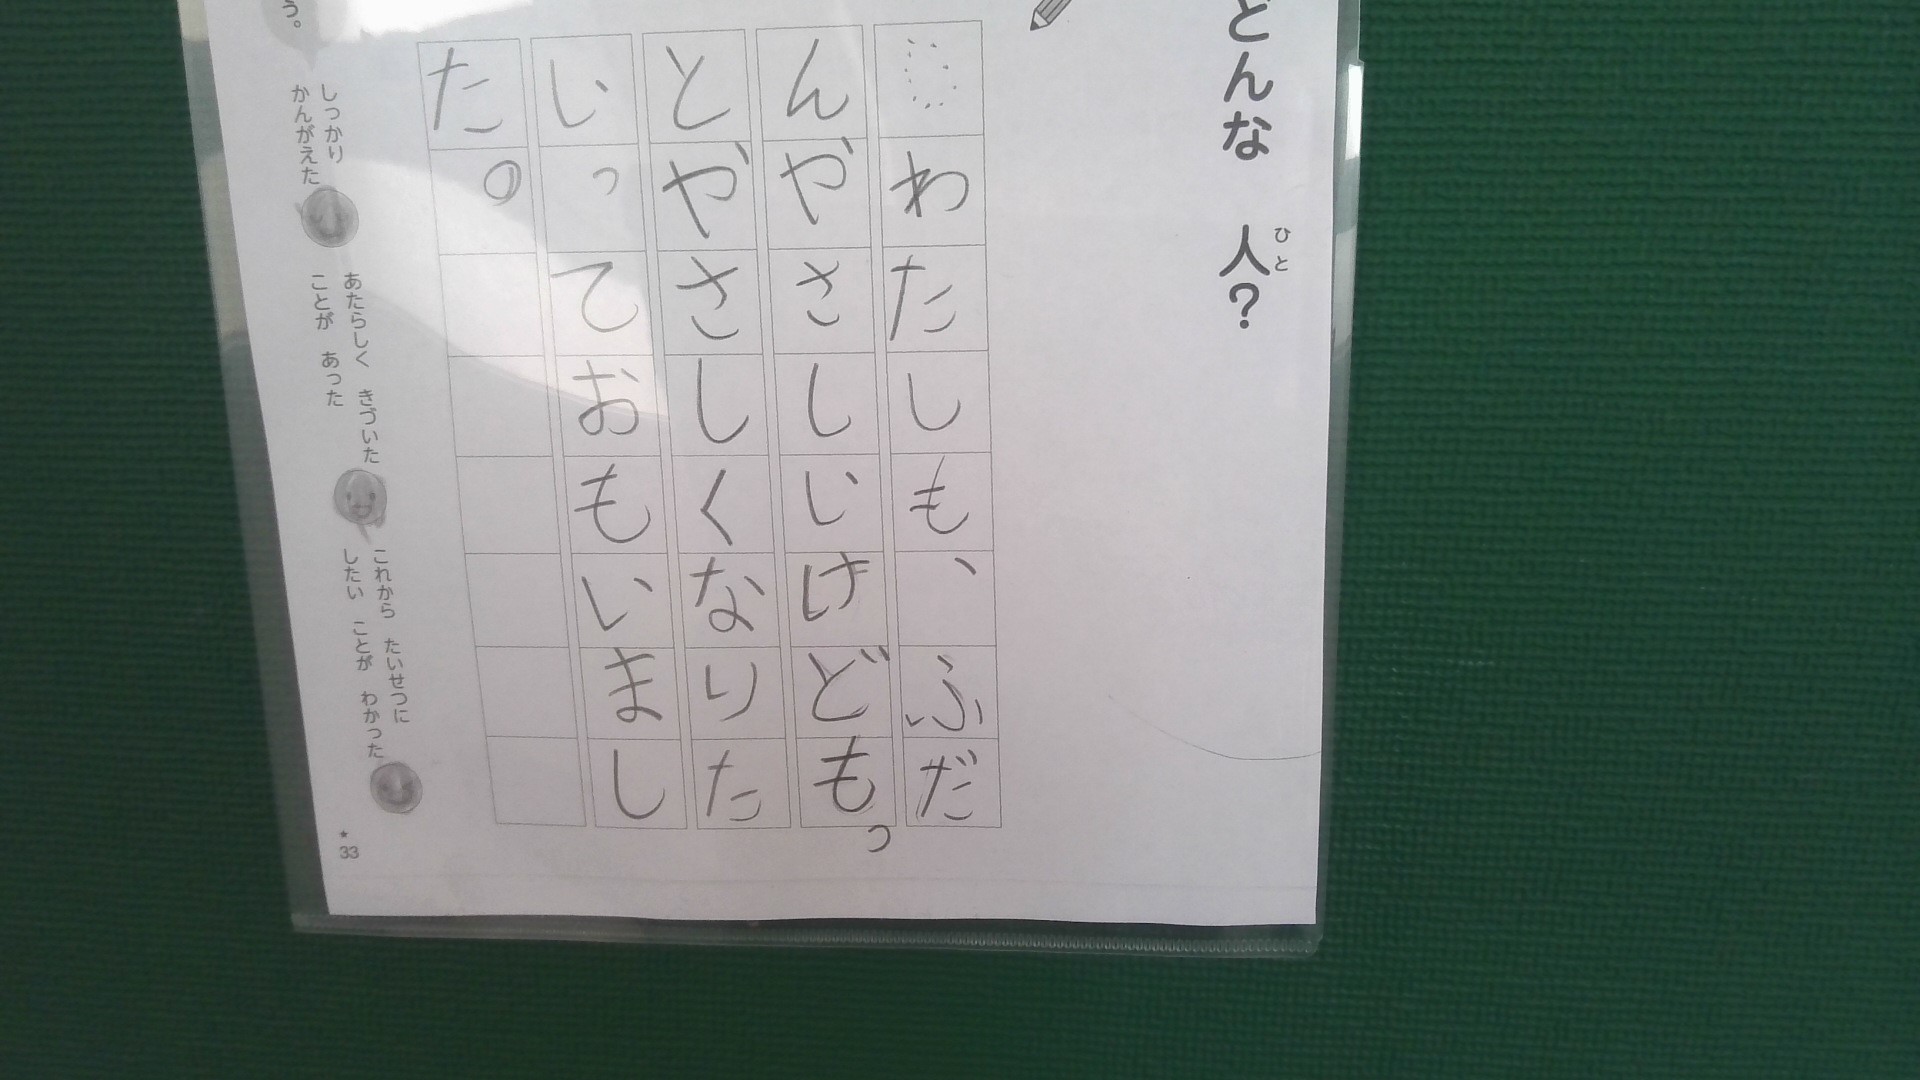 どんな 人?
ひと
わたしも、ふだ
んやさしいけどもっ
とやさしくなりた
いっておもいまし
た。
う。
しっかり
かんがえた
あたらしく きづいた
ことが あった
これから たいせつに
したい ことが わかった
★
33